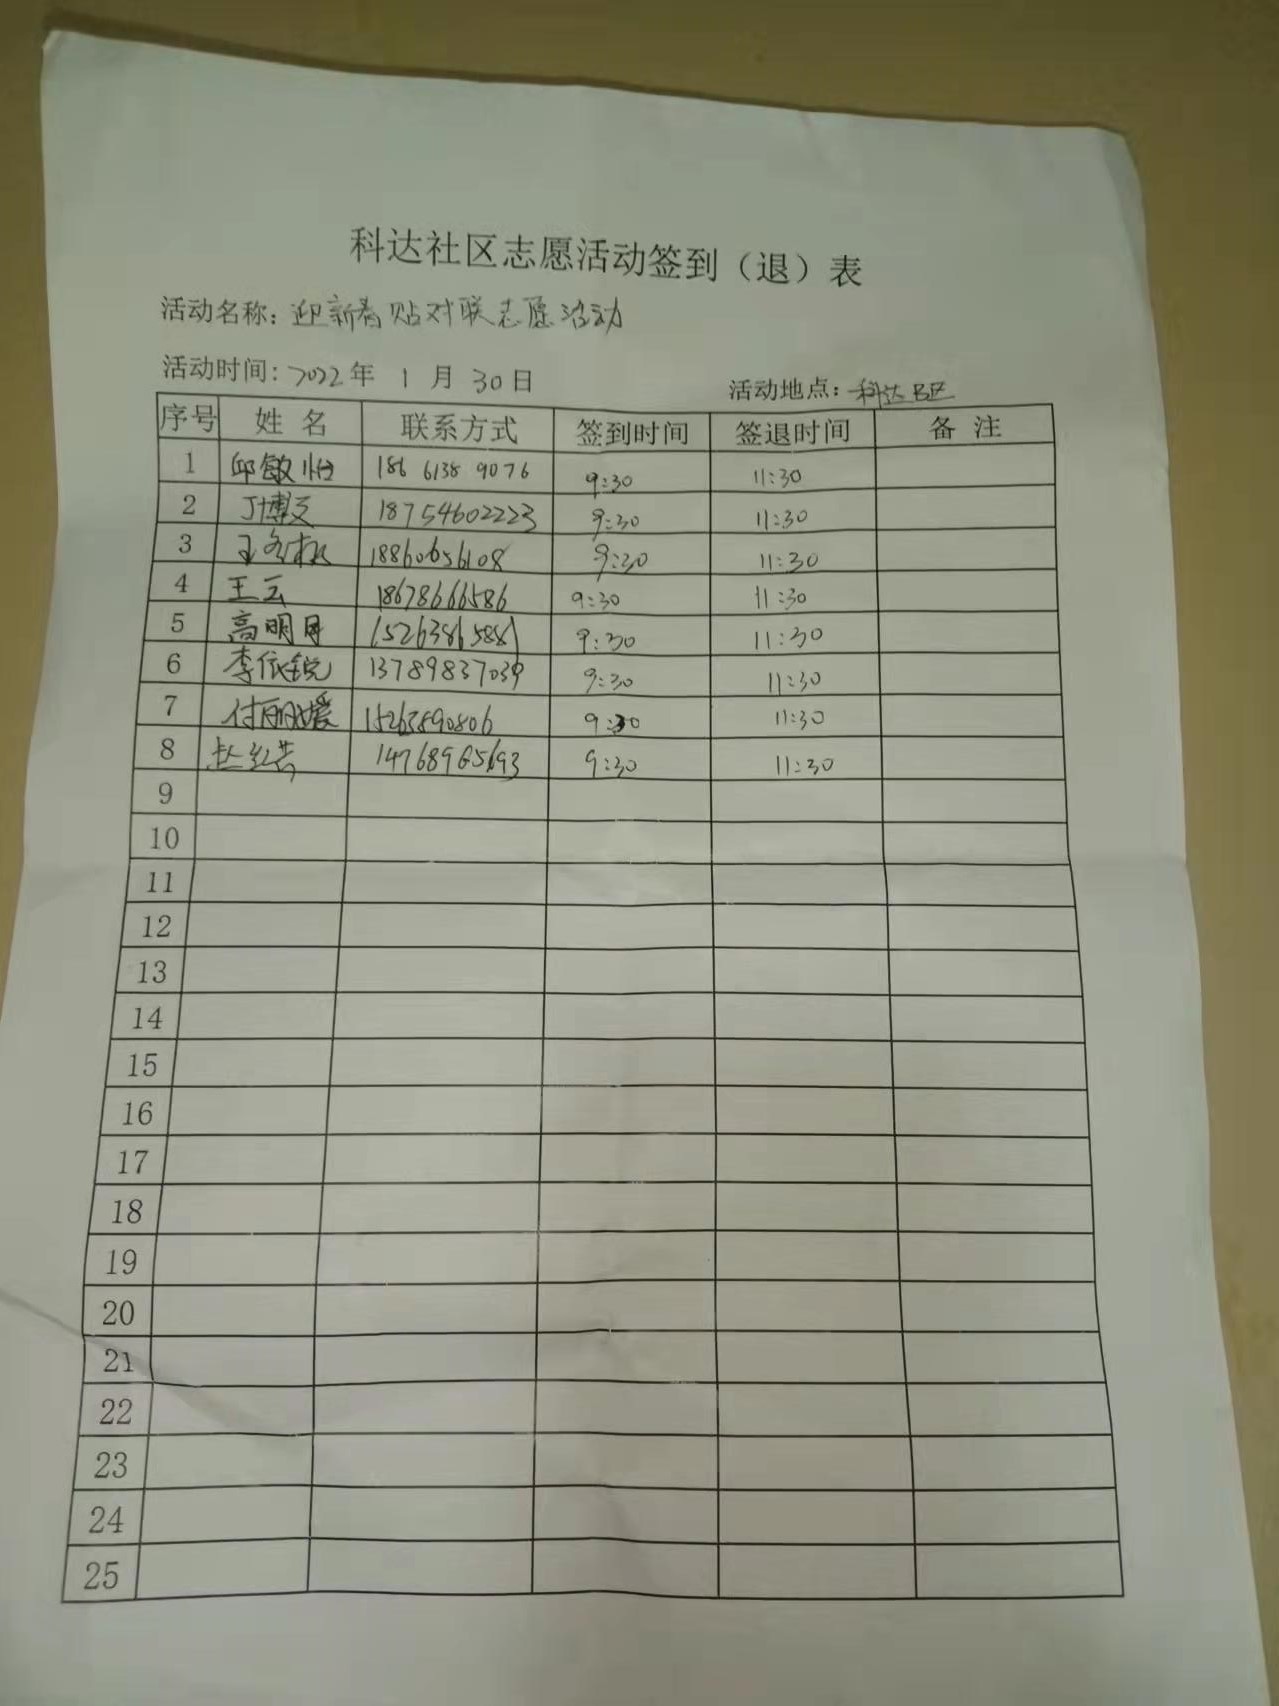 科达社区志愿活动签到（退）表
活动名称：迎新春贴对联志愿活动
活动时间：2022年 1 月 30日 活动地点：科达B区
序号 姓 名 联系方式 签到时间 签退时间 备 注
1 邱敏怡 186 6138 9076 9:30 11:30
2 丁博文 18754602223 9:30 11:30
3 王 18860656108 9:30 11:30
4 王云 18678666586 9:30 11:30
5 高明月 15263865881 9:30 11:30
6 李依锐 13789837039 9:30 11:30
7 付丽媛 15263890806 9:30 11:30
8 14768965693 9:30 11:30
9
10
11
12
13
14
15
16
17
18
19
20
21
22
23
24
25